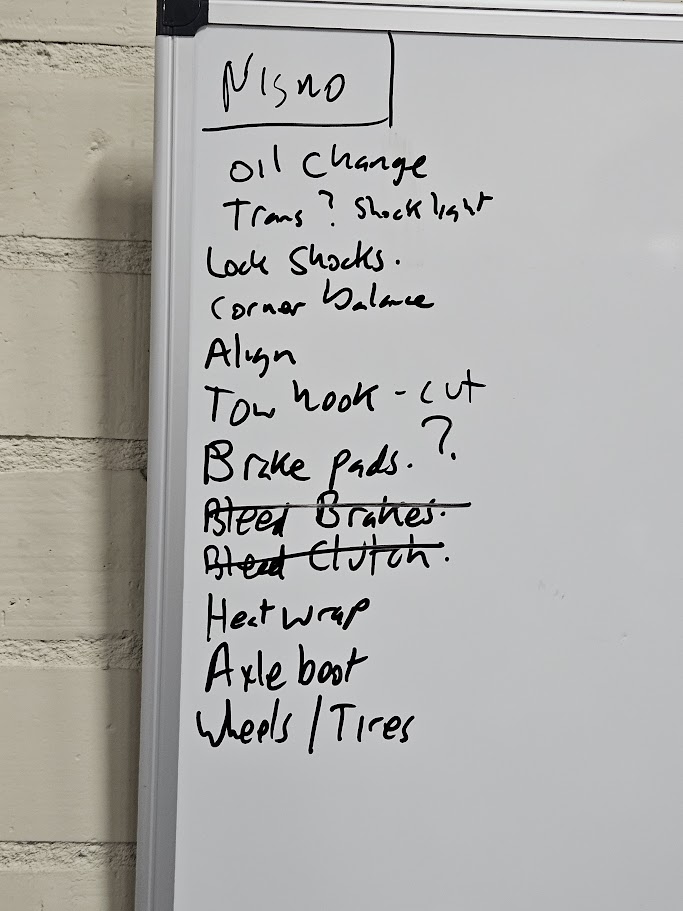 Nismo
Oil change
Trans ? Shock light
Lock Shocks.
Corner balance
Align
Tow hook - cut
Brake pads. ?
Bleed Brakes.
Bleed Clutch.
Heat wrap
Axle boot
Wheels / Tires